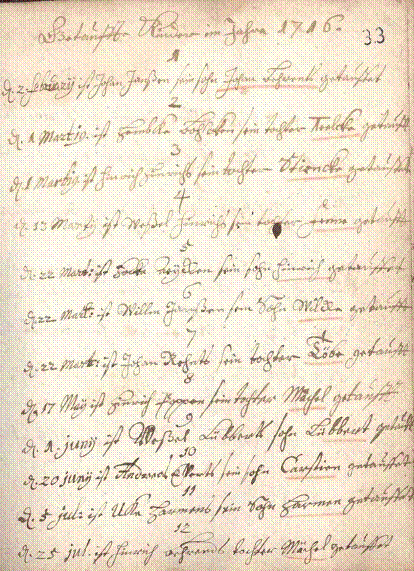 Getauffte Kinder im Jahre 1716.
33
1
d. 2 february ist Johan Janßen sein sohn Johan Behrent getauffet
2
d. 1 Martij. ist sein tochter Trelcke getaufft
3
d. 1 Martij ist Hinrich Hinrichs sein tochter Stiencke getauffet
4
d. 13 Martij ist Weßel Hinrichs sein tochter getaufft
5
d. 22 Mart: ist sein sohn Hinrich getauffet
6
d. 22 Mart: ist Willm Janßen sein Sohn Wilcke getaufft
7
d. 22 Mart: ist Johan sein tochter Tobe getaufft
8
d. 17 May ist Hinrich sein tochter Machel getaufft
9
d. 1. Junij ist Weßel Lubberts sohn Lubbert getaufft
10
d. 20 Junij ist Andreas Ellerts sein sohn Carstien getauffet
11
d. 5 Jul: ist Uke Harmens sein Sohn Harmen getauffet
12
d. 25 Jul: ist Hinrich Behrends tochter Machel getauffet